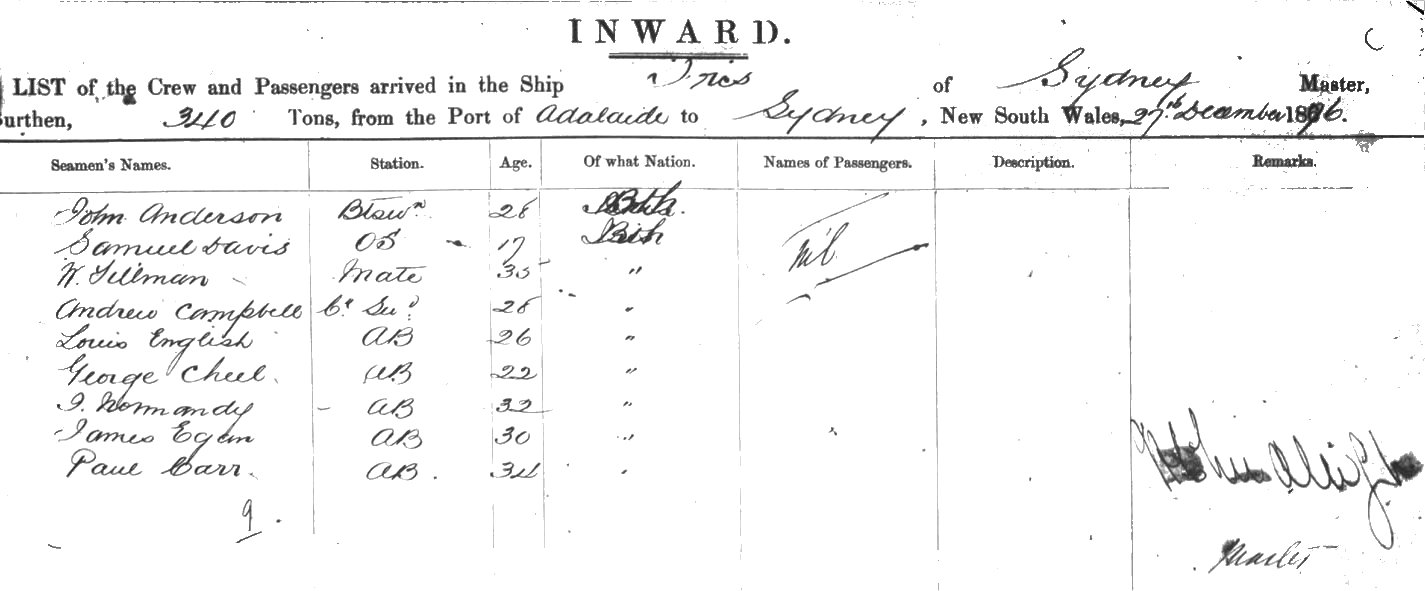 INWARD.
LIST of the Crew and Passengers arrived in the Ship Iris of Sydney Master,
Burthen, 340 Tons, from the Port of Adalaide to Sydney, New South Wales, 27th December 1876.
Seamen's Names. Station. Age. Of what Nation. Names of Passengers. Description. Remarks.
John Anderson Btswn 28 Btsh. Nil
Samuel Davis OS 17 Btsh
W. Tillman Mate 35 "
Andrew Campbell 28 "
Louis English AB 26 "
George Cheel. AB 22 "
I. Normandy - AB 32 "
James Egan AB 30 "
Paul Carr. AB. 34 "
9.
Master